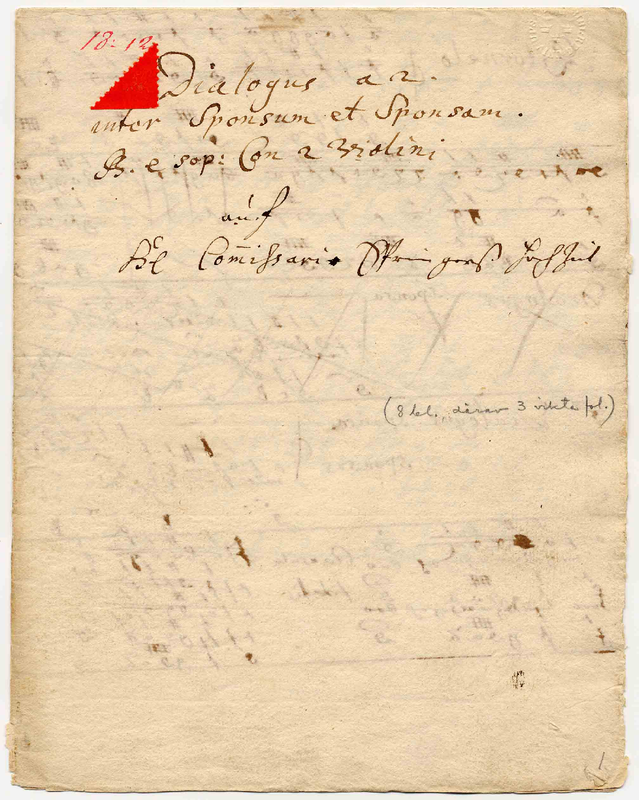 18:12
Dialogus a 2.
inter Sponsum et Sponsam.
B. e sop: Con 2 Violini
auf
H Comissario Springers hochzeit
(8 bl. därav 3 vikta fol.)
1